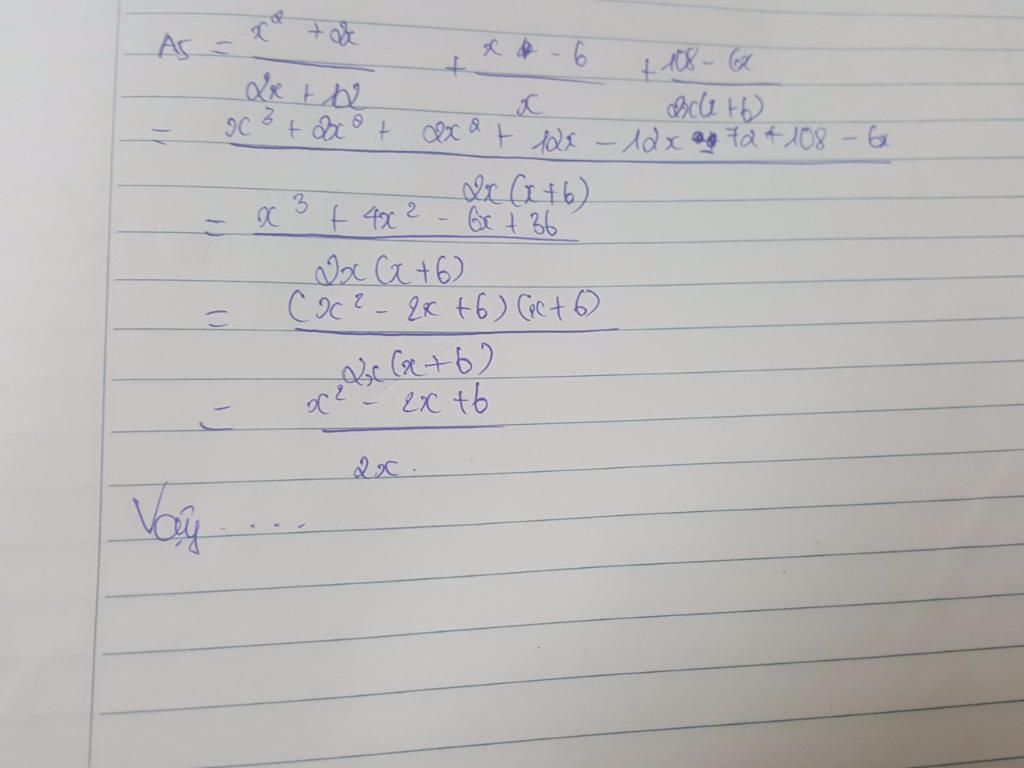 A5 = (x² + 2x)/(2x + 12) + (x - 6)/x + (108 - 6x)/(2x(x + 6))
= (x³ + 2x² + 2x² + 12x - 12x - 72 + 108 - 6x)/(2x(x + 6))
= (x³ + 4x² - 6x + 36)/(2x(x + 6))
= ((x² - 2x + 6)(x + 6))/(2x(x + 6))
= (x² - 2x + 6)/(2x).
Vậy.....